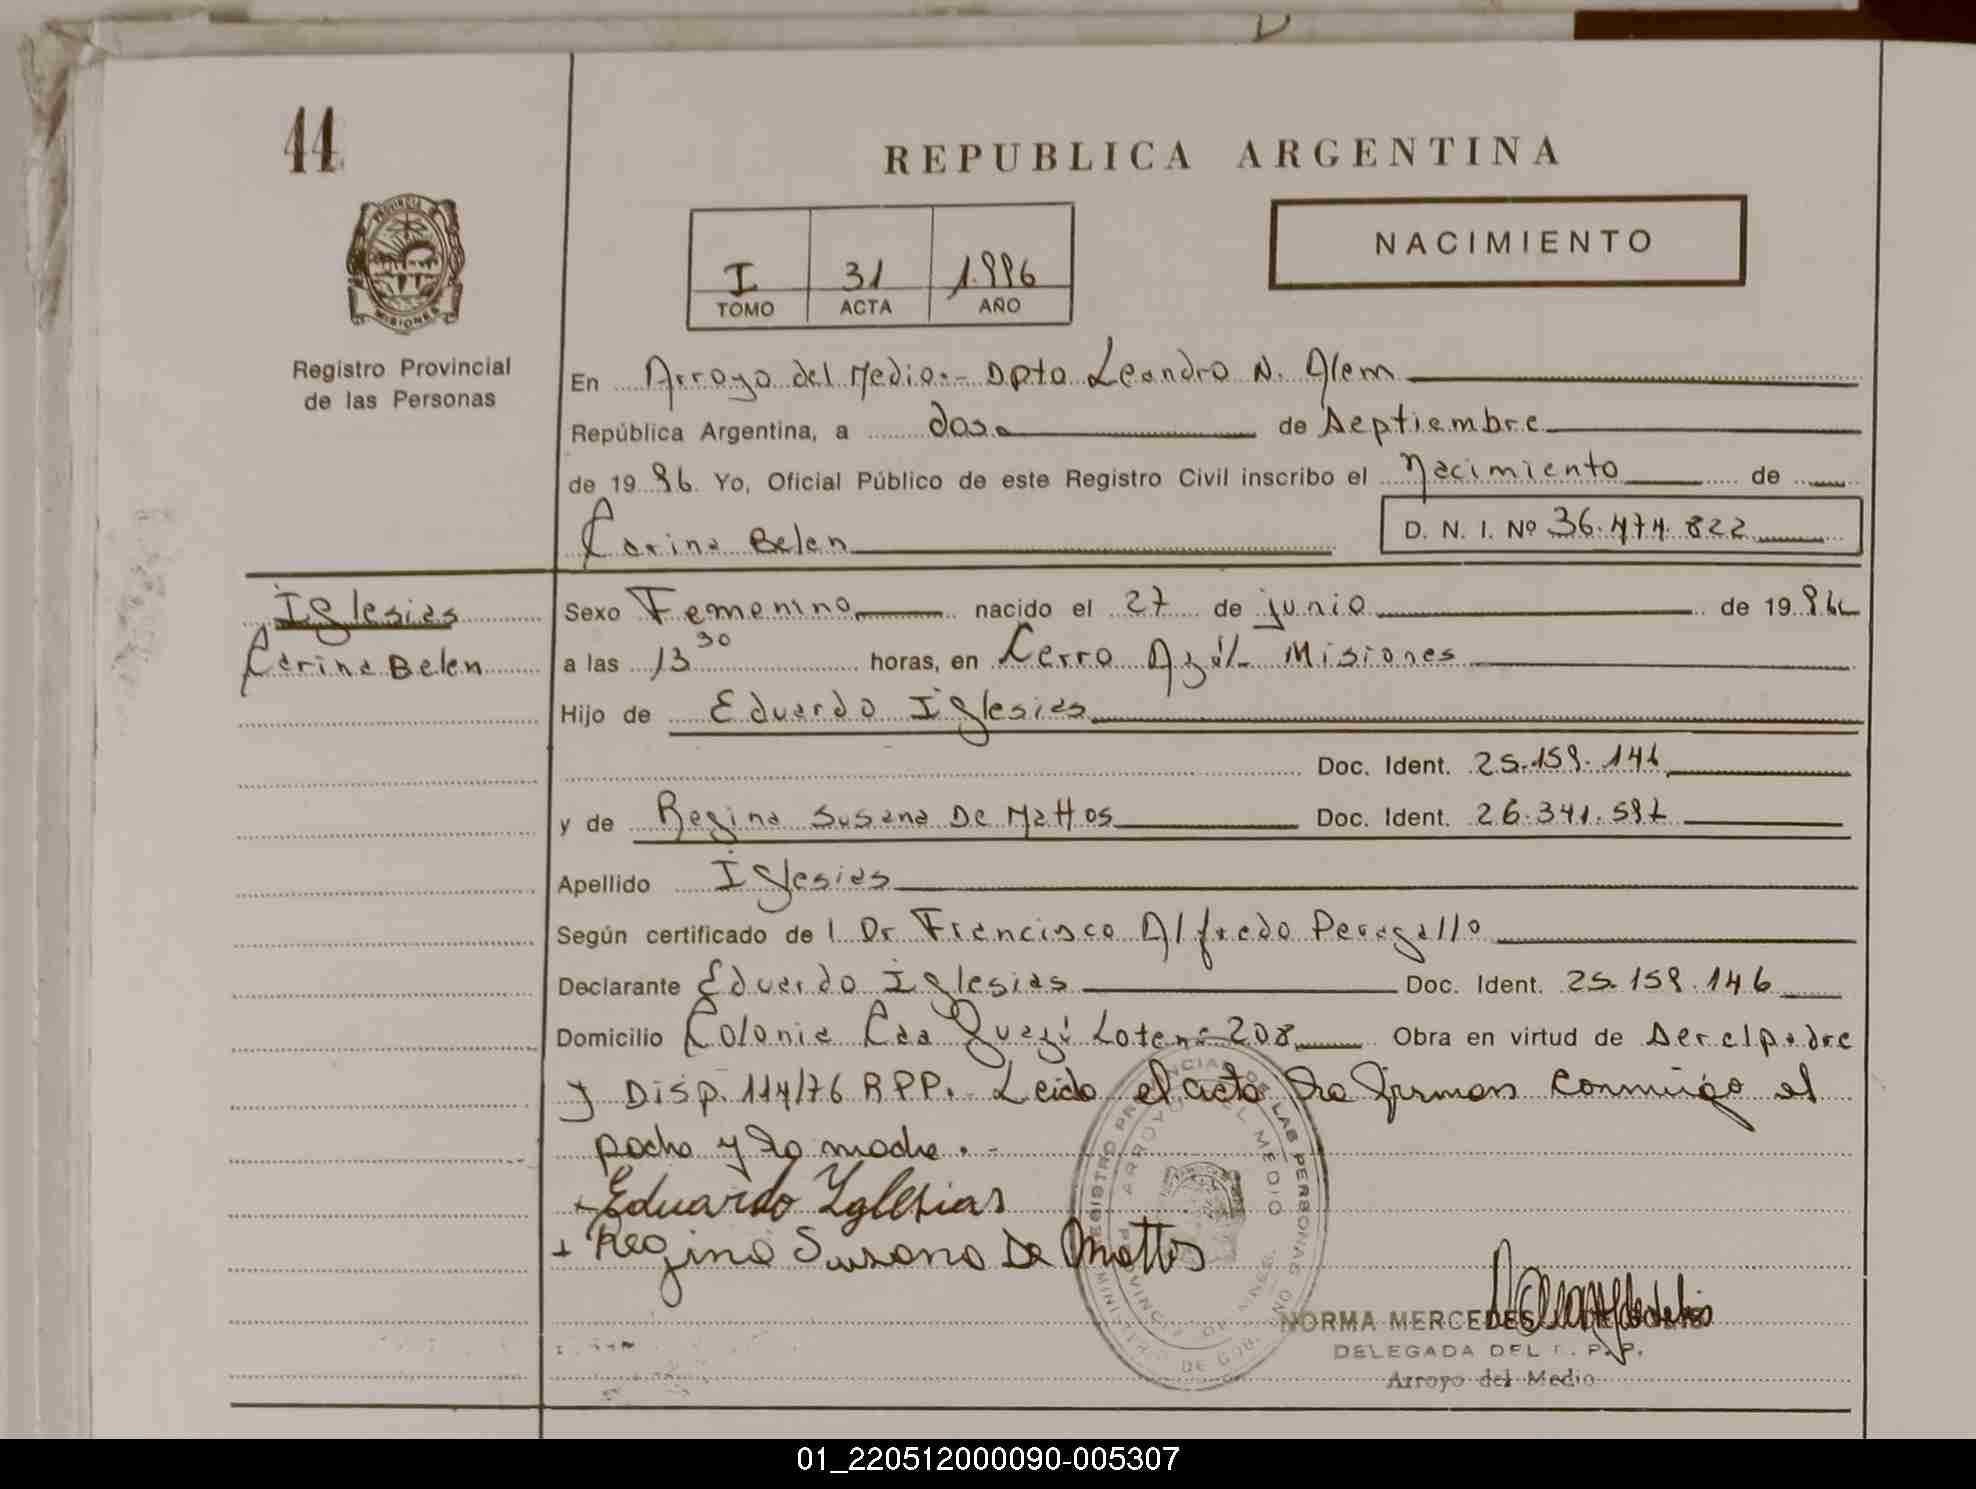 44
REPUBLICA ARGENTINA
PROVINCIA
MISIONES
NACIMIENTO
I 31 1.996
TOMO ACTA AÑO
Registro Provincial
de las Personas
En Arroyo del Medio.- Dpto Leandro N. Alem
República Argentina, a dos de Septiembre
de 19 96. Yo, Oficial Público de este Registro Civil inscribo el Nacimiento de
Carina Belen D. N. I. Nº 36.474.822
Iglesias
Carina Belen
Sexo Femenino nacido el 27 de junio de 19 96
a las 13 30 horas, en Cerro Azúl- Misiones
Hijo de Eduardo Iglesias
Doc. Ident. 25.159.146
y de Regina Susana De Mattos Doc. Ident. 26.341.597
Apellido Iglesias
Según certificado de l Dr Francisco Alfredo Peragallo
Declarante Eduardo Iglesias Doc. Ident. 25.159.146
Domicilio Colonia Caa Guazú Lote nº 208 Obra en virtud de Ser el padre
y Disp. 114/76 R.P.P.- Leida el acta la firman conmigo el
padre y la madre.-
Eduardo Yglesias
Regina Susana De Mattos
REGISTRO PROVINCIAL DE LAS PERSONAS
ARROYO DEL MEDIO
PROVINCIA DE MISIONES
MINISTERIO DE GOBIERNO
NORMA MERCEDES
DELEGADA DEL R. P. P.
Arroyo del Medio
01_220512000090-005307